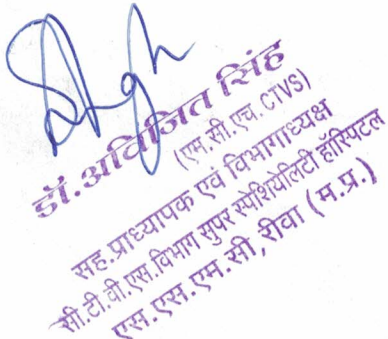 Singh
डॉ. अविजित सिंह
(एम.सी.एच. CTVS)
सह.प्राध्यापक एवं विभागाध्यक्ष
सी.टी.वी.एस.विभाग सुपर स्पेशियेलिटी हॉस्पिटल
एस.एस.एम.सी, रीवा (म.प्र.)